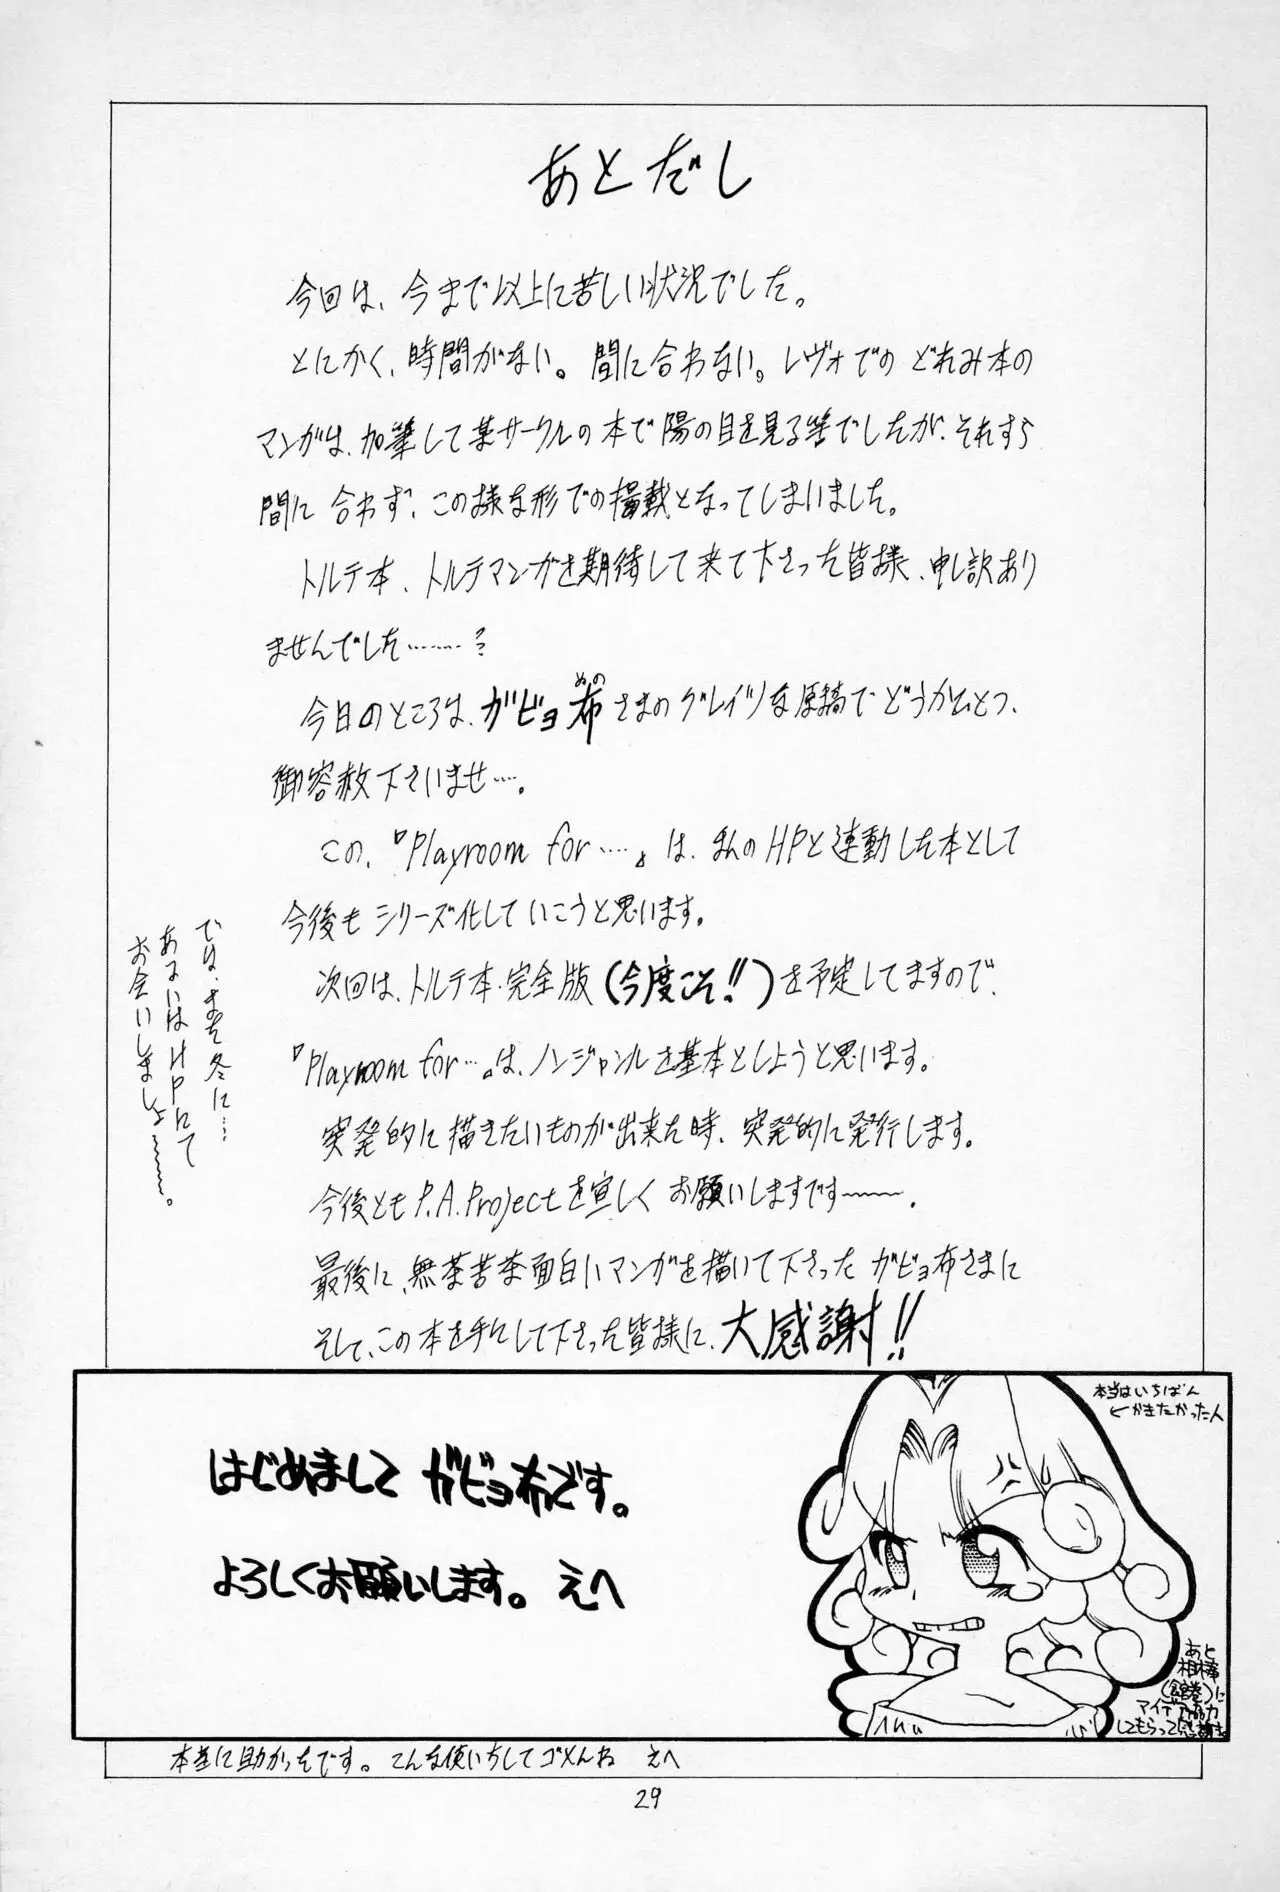 あとだし
今回は、今まで以上に苦しい状況でした。
とにかく、時間がない。間に合わない。レヴォでのどれみ本の
マンガは、加筆して某サークルの本で陽の目を見る筈でしたが、それすら
間に合わず、この様な形での掲載となってしまいました。
トルテ本、トルテマンガを期待して来て下さった皆様、申し訳あり
ませんでした………?
今日のところは、ガビョ布さまのグレイツな原稿でどうかひとつ、
ぬの
御容赦下さいませ…。
この、『Playroom for …』は、まんのHPと連動した本として
今後もシリーズ化していこうと思います。
次回は、トルテ本・完全版(今度こそ!!)を予定してますので、
『Playroom for …』は、ノンジャンルを基本としようと思います。
突発的に描きたいものが出来た時、突発的に発行します。
今後ともP.A.Projectを宜しくお願いしますです~~~。
最後に、無茶苦茶面白いマンガを描いて下さったガビョ布さまに
そして、この本を手にして下さった皆様に、大感謝!!
では、また冬に…
あるいはHPにて
お会いしましょ~~~。
はじめまして ガビョ布です。
よろしくお願いします。 えへ
本当はいちばん
←かきたかった人
あと
相棒
に
アイデア協力
してもらって
本当に助かったです。こんな使い方してゴメンね えへ
29